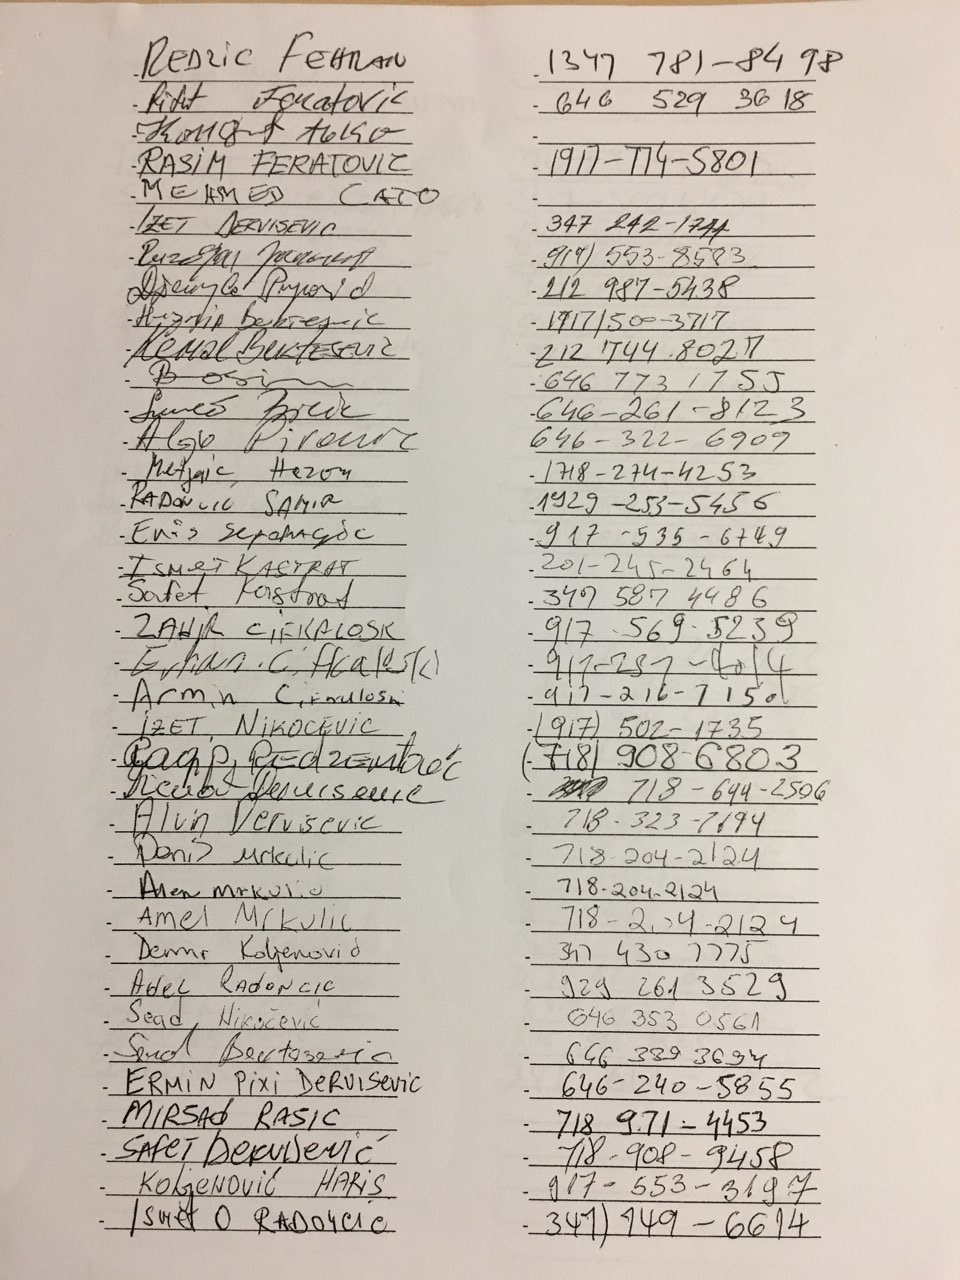 REDZIC FEHRAN 1347 781-84 98
Rifat Feratovic 646 529 3618
RASIM FERATOVIC 1917-774-5801
MEHMED CATO
IZET DERVISEVIC 347 242-1744
917) 553-8583
212 987-5438
1917/500-3717
Kemal BEKTESEVIC 212 744.8027
646 773 1755
646-261-8123
646-322-6909
Hazom 1718-274-4253
RADONCIC SAMIR 1929-253-5456
Enis 917-535-6749
ISMET KASTRAT 201-245-2464
Safet Kastrat 347 587 4486
ZAHIR CIFKALOSK 917.569.5239
917-257-4014
Armin 917-216-7150
IZET NIKOCEVIC (917) 502-1735
REDZEMTOVIC (718) 908-6803
Dervisevic 718-644-2506
Alvin Dervisevic 718-323-7194
Denis Mrkulic 718-204-2124
Alen Mrkulic 718-204-2124
Amel Mrkulic 718-204-2124
Demir Koljenović 347 430 7775
Adel RADONCIC 929 261 3529
Sead Nikočević 646 353 0561
Senad 646 389 3694
ERMIN PIXI DERVISEVIC 646-240-5855
MIRSAD RASIC 718 971-4453
SAFET DERVISEVIĆ 718-908-9458
KOLJENOVIĆ HARIS 917-553-3197
Ismet O RADONCIC 347) 749-6614